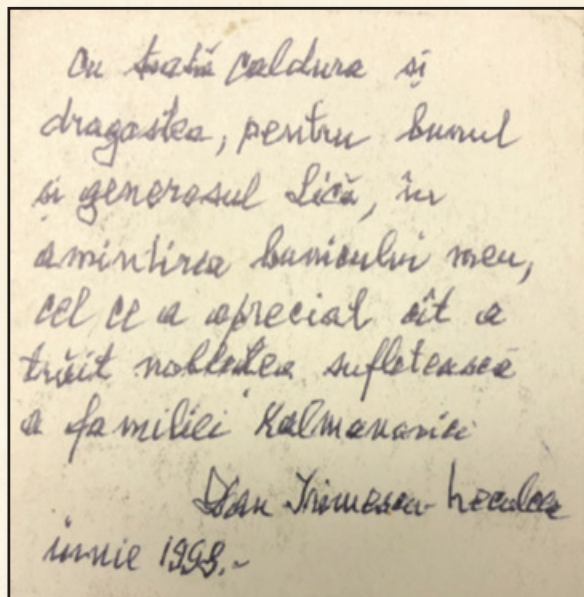 Cu toată caldura și
dragostea, pentru bunul
și generosul Lică, în
amintirea bunicului meu,
cel ce a apreciat cît a
trăit noblețea sufletească
a familiei Kalmanovici
Dan Irimescu
iunie 1993.-